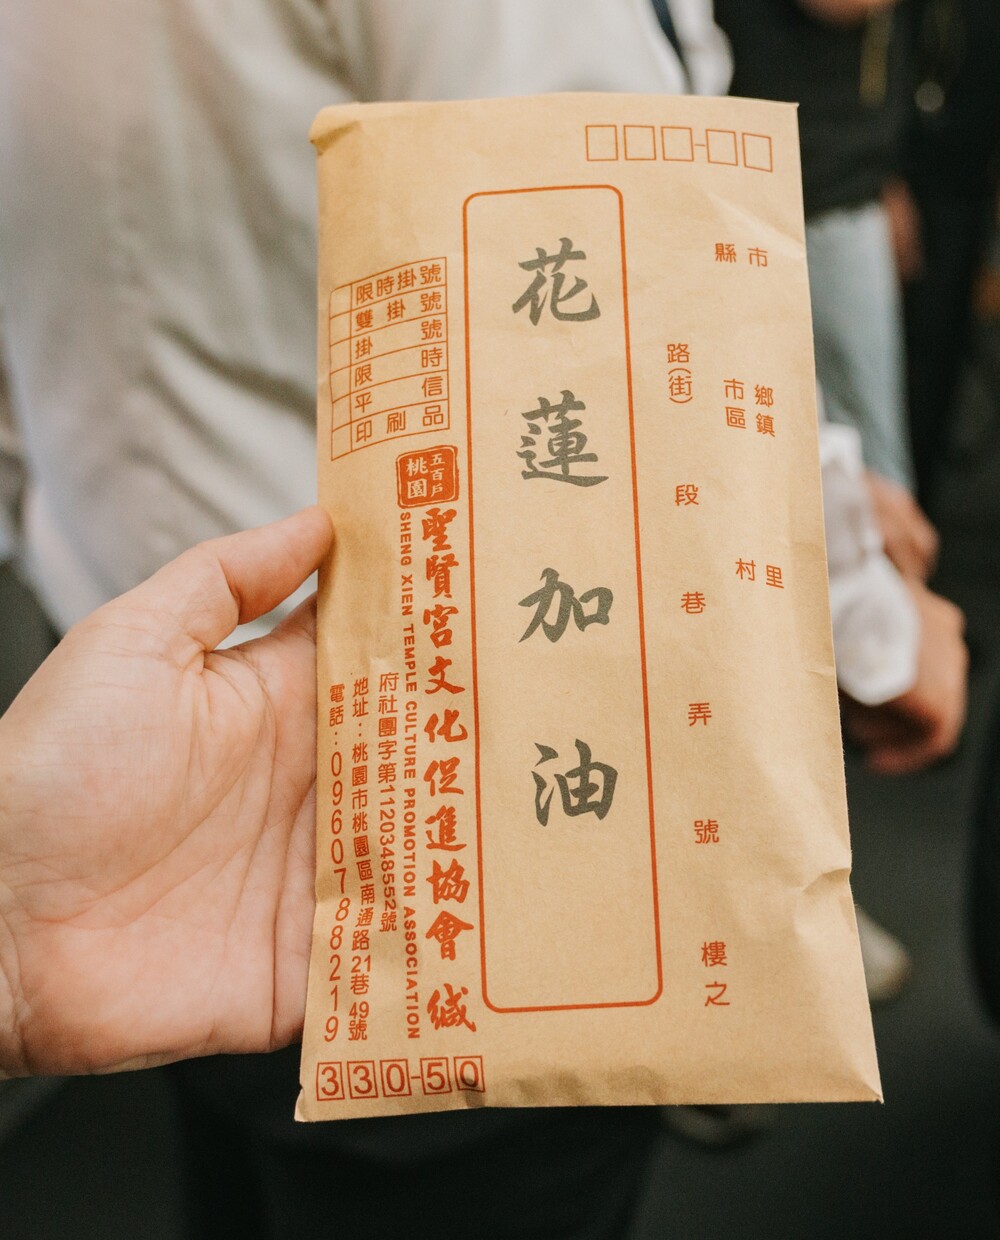 縣市
鄉鎮
市區
村里
路(街)
段
巷
弄
號
樓之
花蓮加油
限時掛號
雙掛號
掛號
限時
平信
印刷品
五百戶
桃園
聖賢宮文化促進協會 緘
SHENG XIEN TEMPLE CULTURE PROMOTION ASSOCIATION
府社團字第1120348552號
地址：桃園市桃園區南通路21巷49號
電話：0960788219
330-50